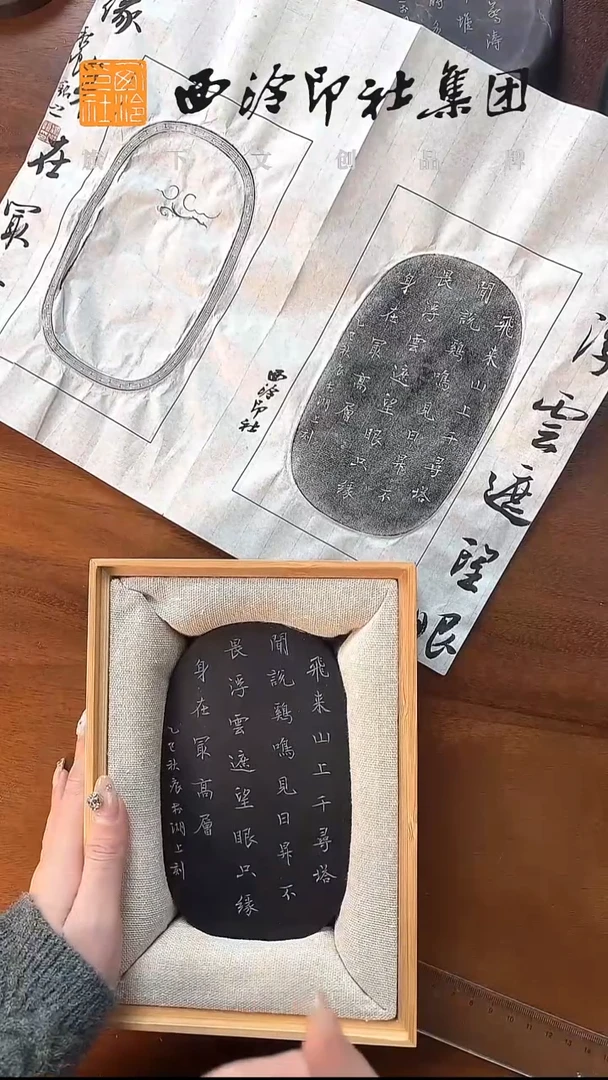 西泠印社
西泠印社集团
旗下文创品牌
浮雲遮望眼
在冣
飛来山上千尋塔
聞説鷄鳴見日昇不
畏浮雲遮望眼只緣
身在冣高層
西泠印社
飛来山上千尋塔
聞説鷄鳴見日昇不
畏浮雲遮望眼只緣
身在冣高層
乙巳秋 湖上刻